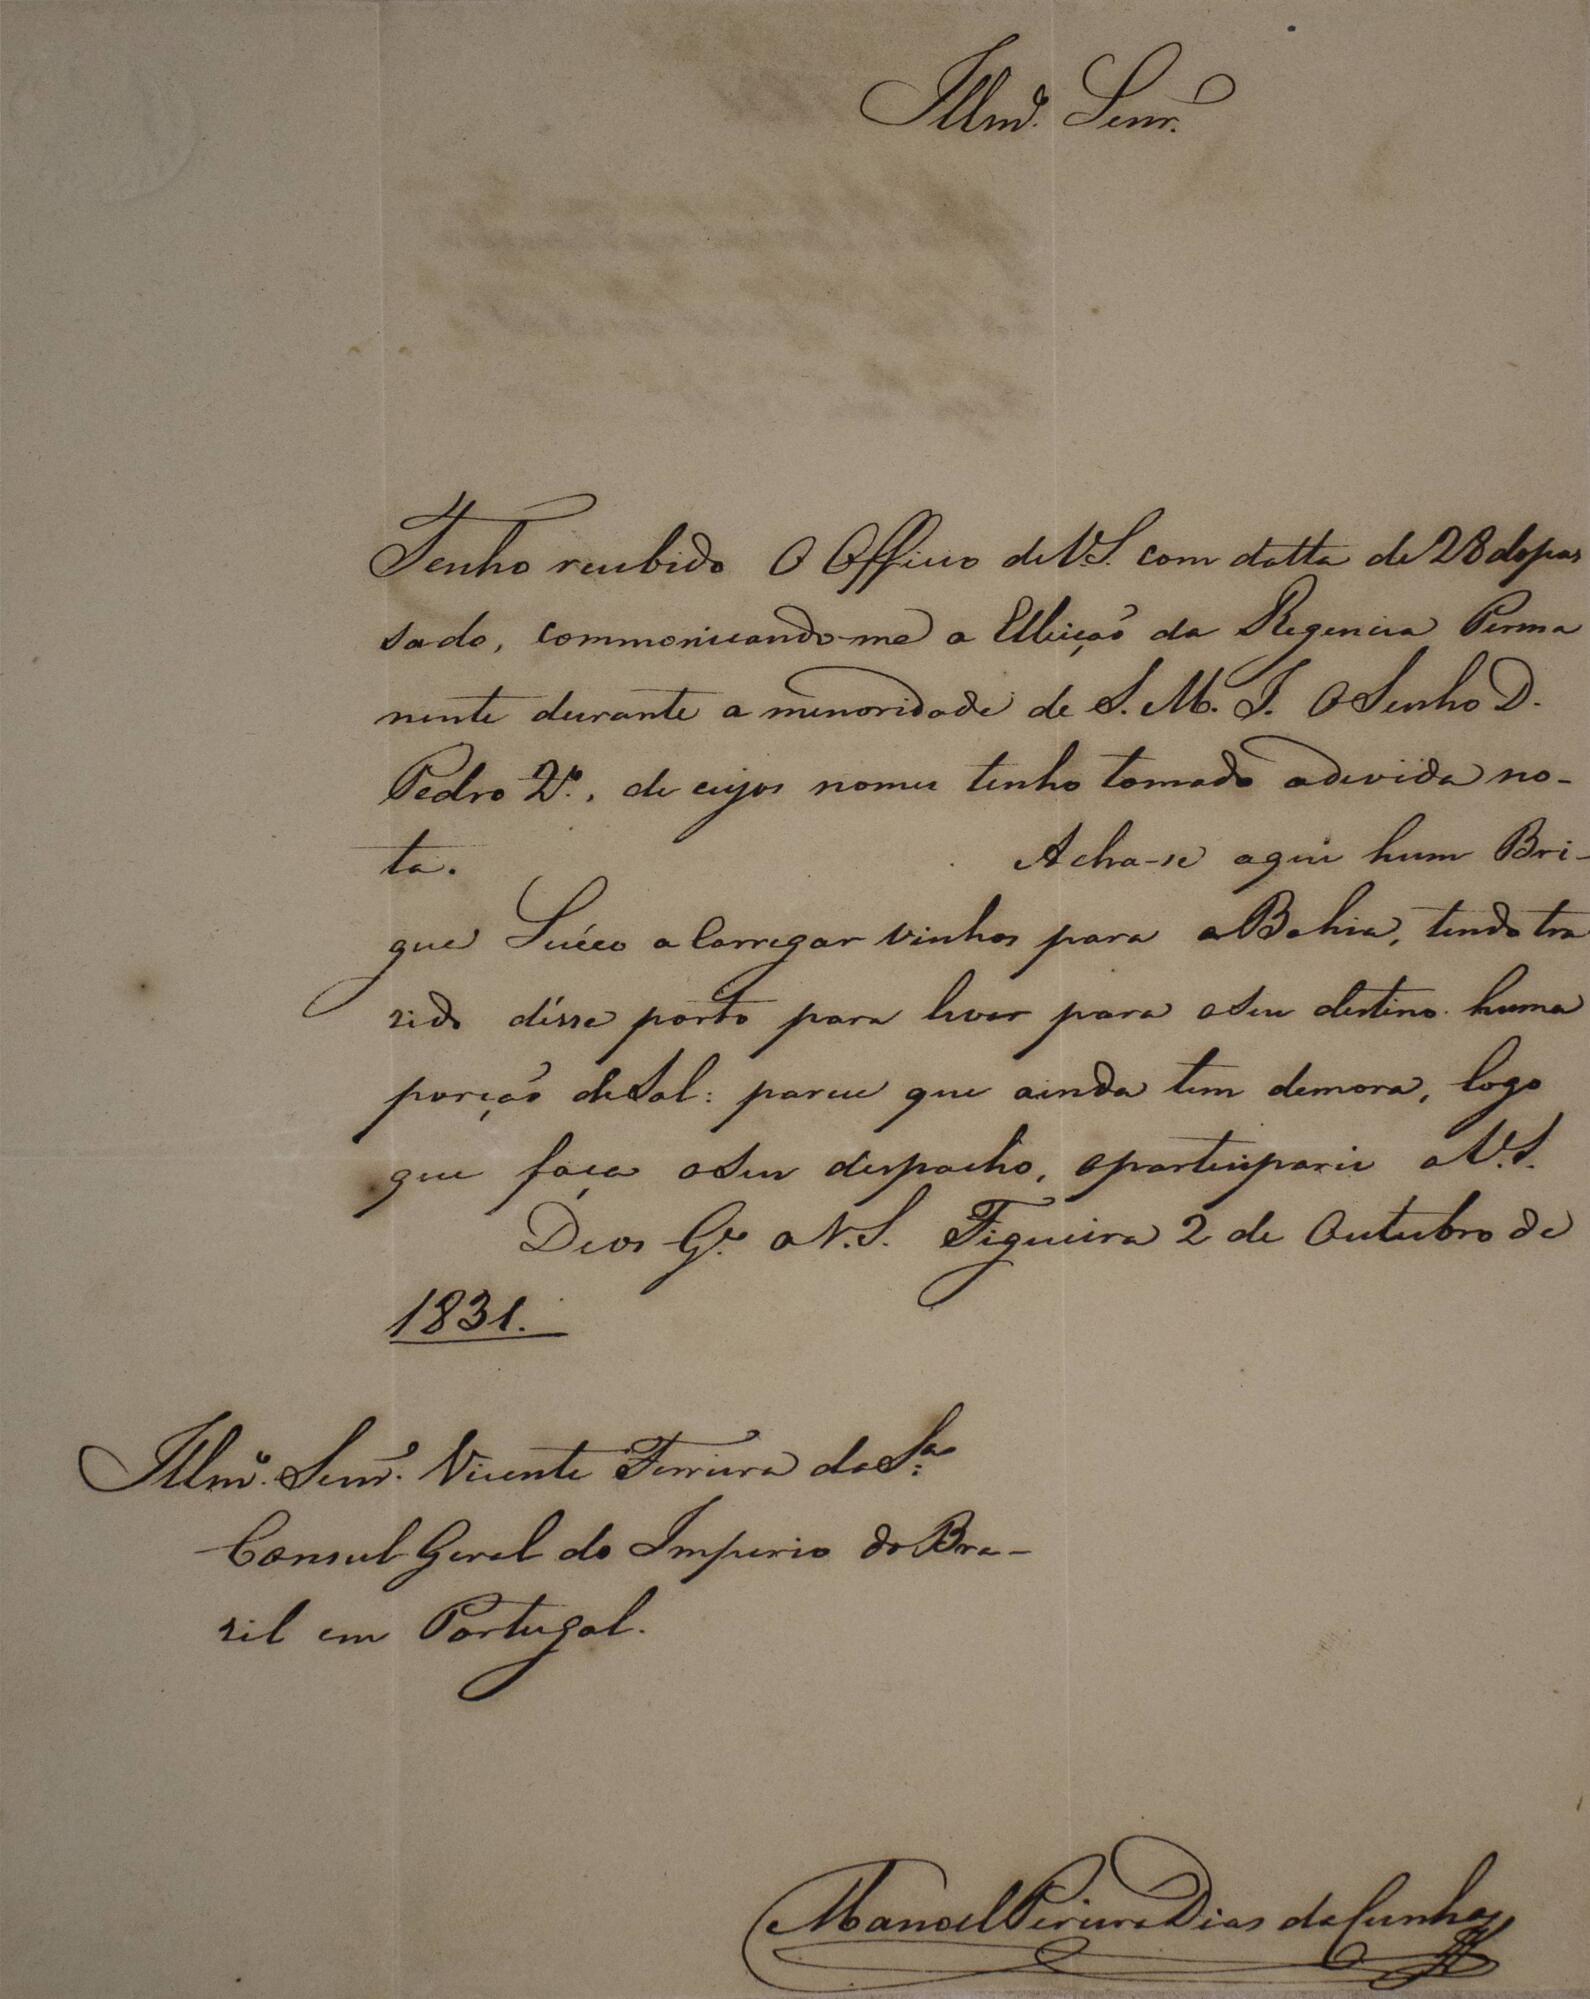 Illmo. Senr.
Tenho recebido O Officio de V.S. com datta de 28 do pas
sado, commonicando-me a Elleição da Regencia Perma
nente durante a menoridade de S. M. I. O Senho D.
Pedro 2o., de cujos nomes tenho tomado a devida no-
ta. Acha-se aqui hum Bri-
gue Suéco a Carregar vinhos para a Bahia, tendo tra
zido désse porto para levar para o seu destino huma
porção de Sal: parece que ainda tem demora, logo
que faça o seu despacho, o partecipárie a V.S.
Deos Ge. a V.S. Figueira 2 de Outubro de
1831.
Illmo. Senr. Vicente Ferreira da Sa.
Consul Geral do Imperio do Bra-
zil em Portugal.
Manoel Pereira Dias da Cunha